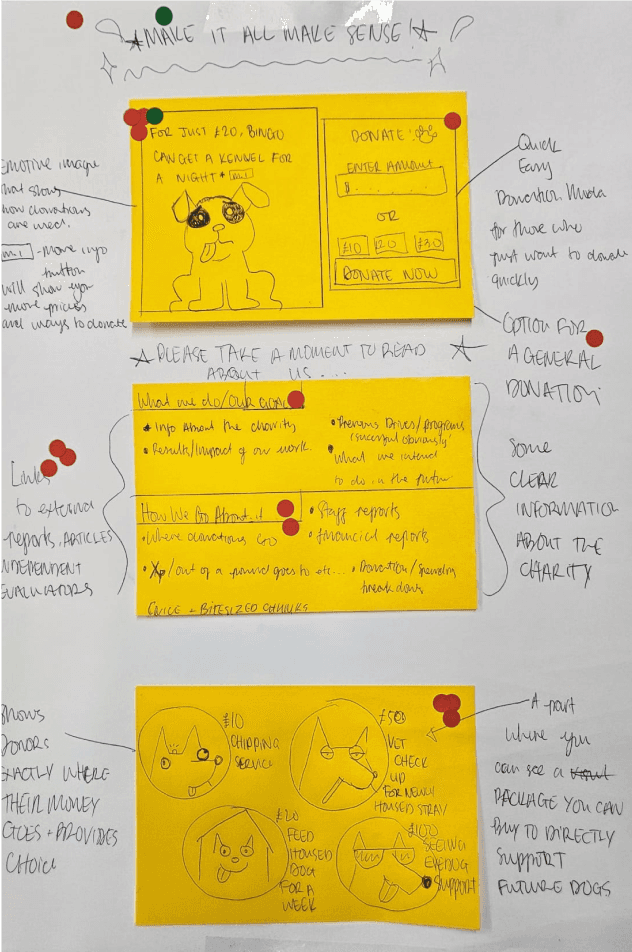 ★MAKE IT ALL MAKE SENSE!★
FOR JUST £20, BINGO
CAN GET A KENNEL FOR
A NIGHT * m.i
DONATE!
ENTER AMOUNT
$
OR
£10 £20 £30
DONATE NOW
EMOTIVE image
that shows
how donations
are used.
m.i -more info
button
will show you
more prices
and ways to donate
Quick
Easy
Donation Media
for those who
just want to donate
quickly
OPTION FOR
A GENERAL
DONATION
★ PLEASE TAKE A MOMENT TO READ ★
ABOUT US ....
What we do/OUR GOALS
* Info About the charity
• Results/impact of our work.
• Previous Drives/programs
(succesful obviously)
• What we intend
to do in the future
How We Go About it
• Where donations GO
• Xp/out of a pound goes to etc...
NICE + BITESIZED CHUNKS
• Staff reports
• financial reports
• Donation/Spending
break downs
Links
to external
reports, ARTICLES
INDEPENDENT
EVALUATORS
SOME
CLEAR
INFORMATION
ABOUT THE
CHARITY
£10
CHIPPING
SERVICE
£50
VET
CHECK
UP
FOR NEWLY
HOUSED STRAY
£20
FEED
HOUSED
DOG
FOR A
WEEK
£100
SEEING
EYE DOG
Support
Shows
DONORS
EXACTLY WHERE
THEIR MONEY
GOES + PROVIDES
CHOICE
A part
where you
can see a
PACKAGE YOU CAN
BUY TO DIRECTLY
SUPPORT
FUTURE DOGS